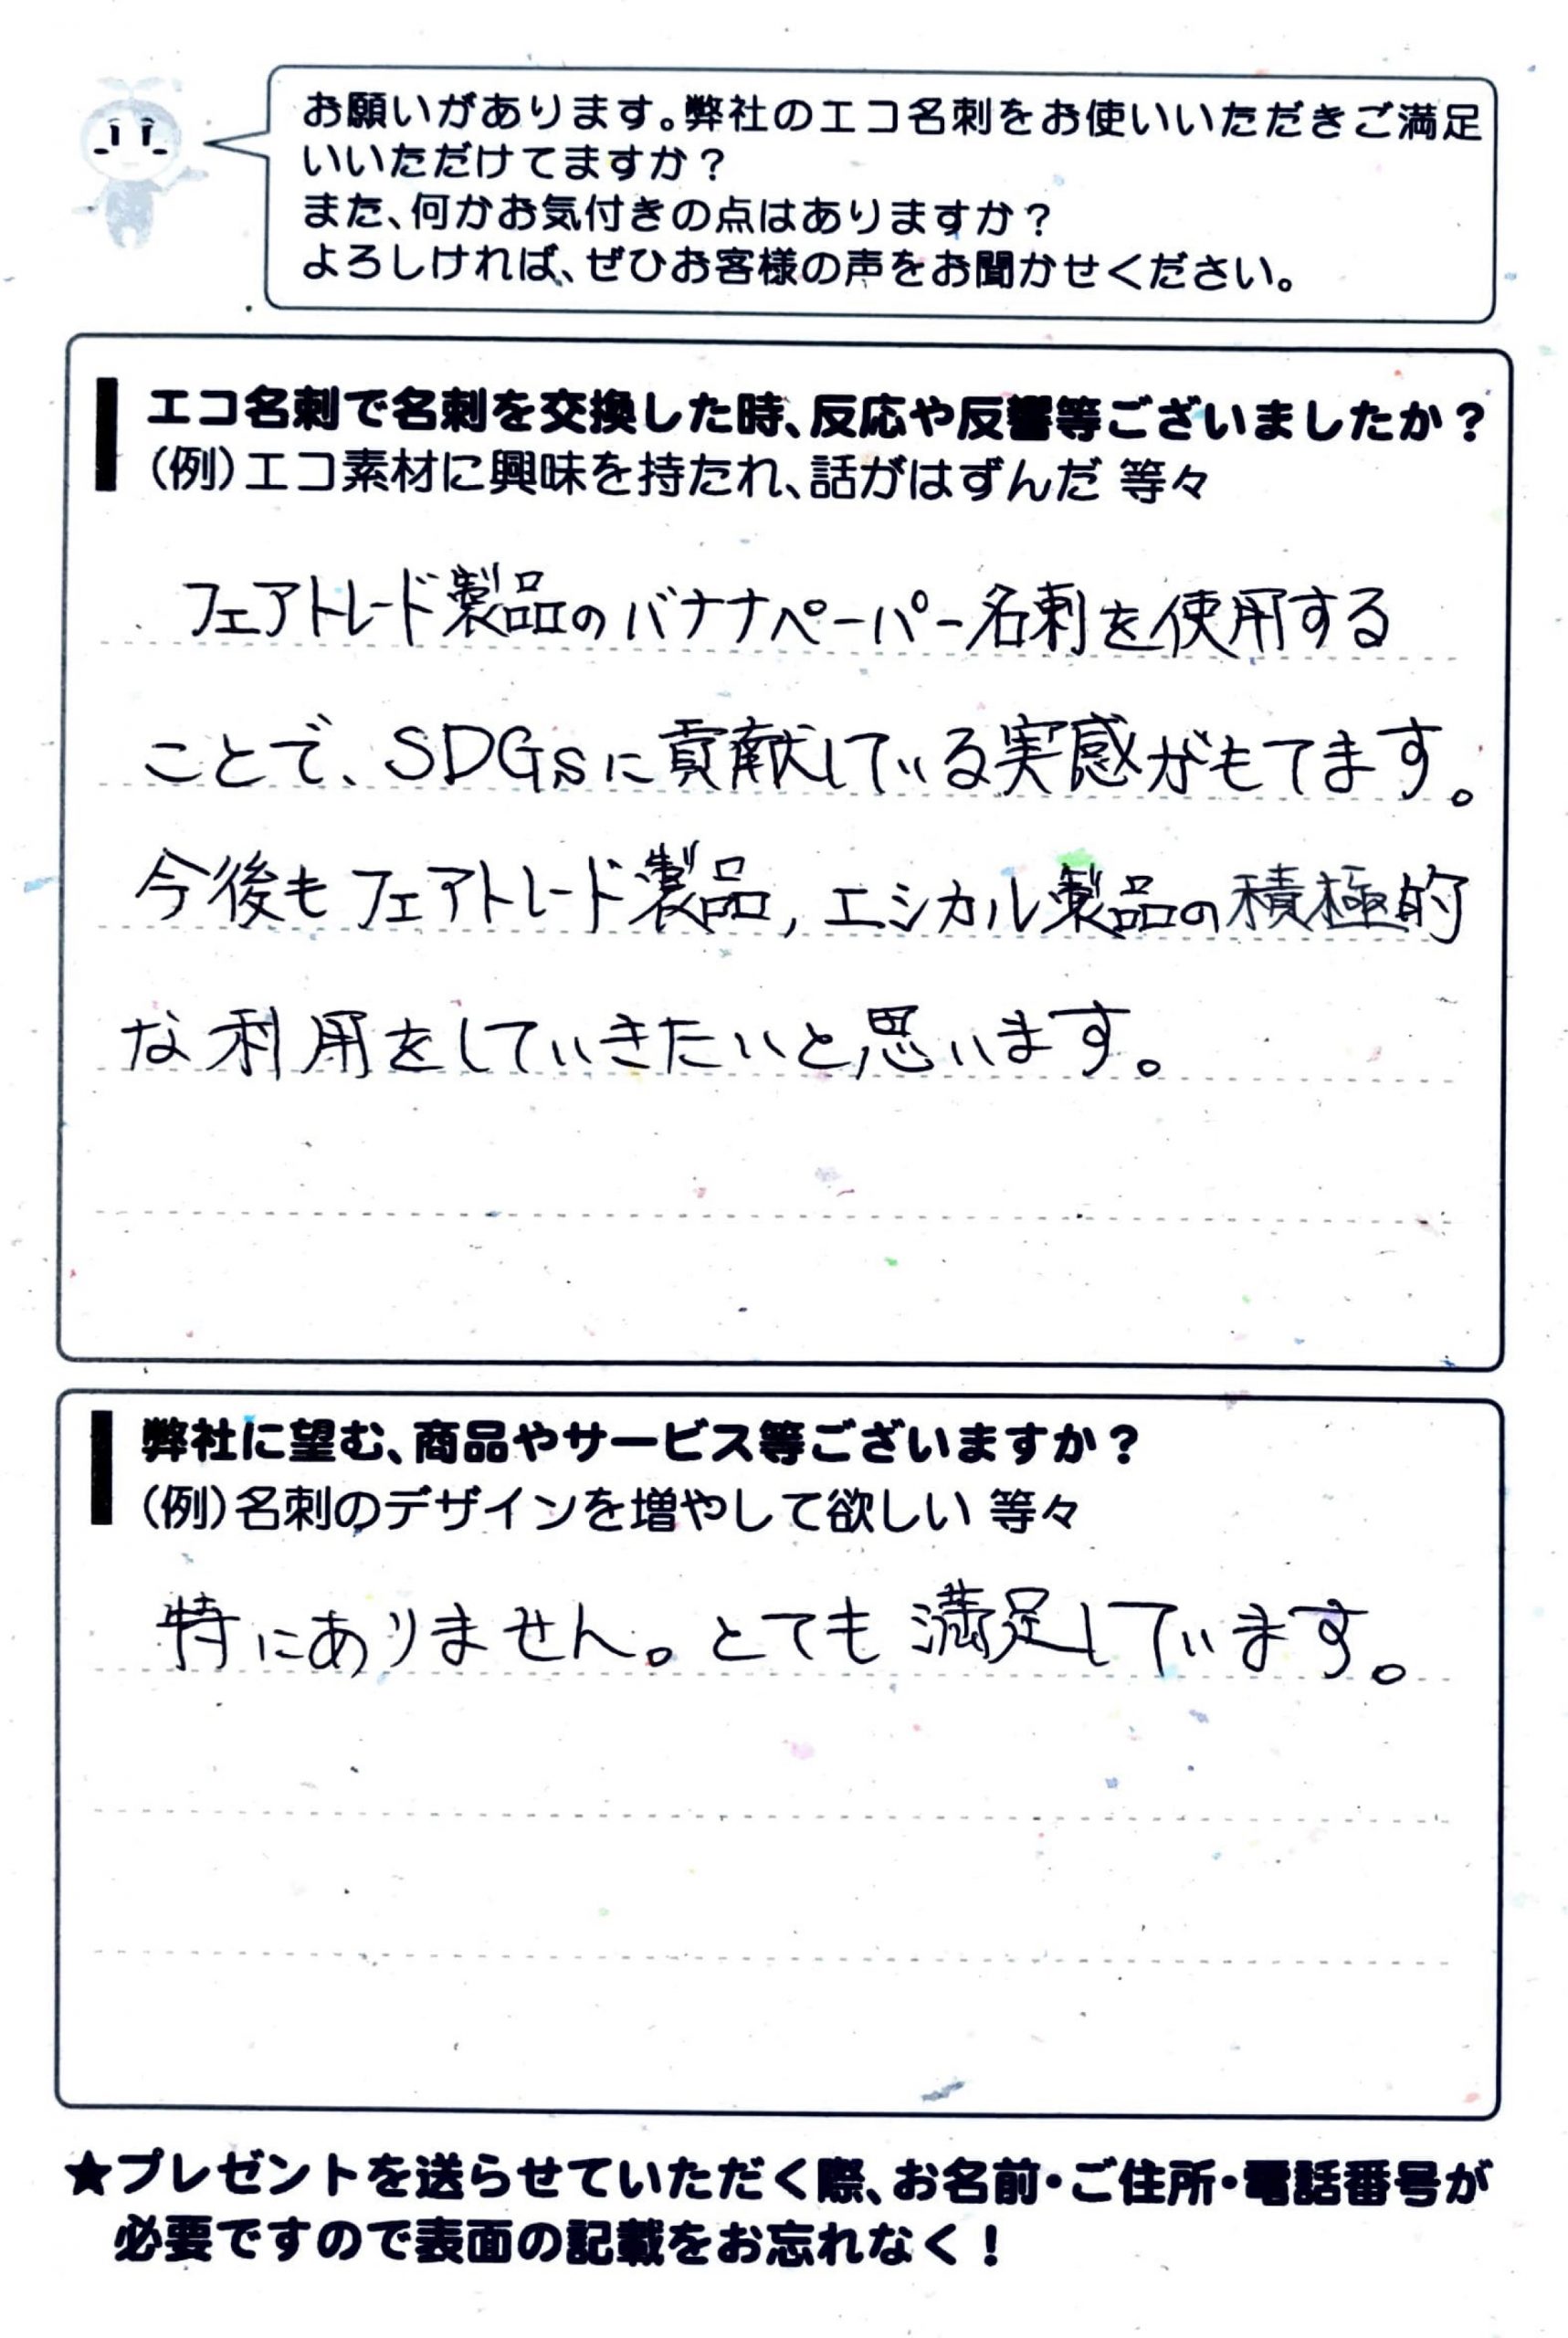 お願いがあります。弊社のエコ名刺をお使いいただきご満足
いいただけてますか？
また、何かお気付きの点はありますか？
よろしければ、ぜひお客様の声をお聞かせください。
エコ名刺で名刺を交換した時、反応や反響等ございましたか？
（例）エコ素材に興味を持たれ、話がはずんだ 等々
フェアトレード製品のバナナペーパー名刺を使用する
ことで、SDGsに貢献している実感がもてます。
今後もフェアトレード製品，エシカル製品の積極的
な利用をしていきたいと思います。
弊社に望む、商品やサービス等ございますか？
（例）名刺のデザインを増やして欲しい 等々
特にありません。とても満足しています。
★プレゼントを送らせていただく際、お名前・ご住所・電話番号が
必要ですので表面の記載をお忘れなく！